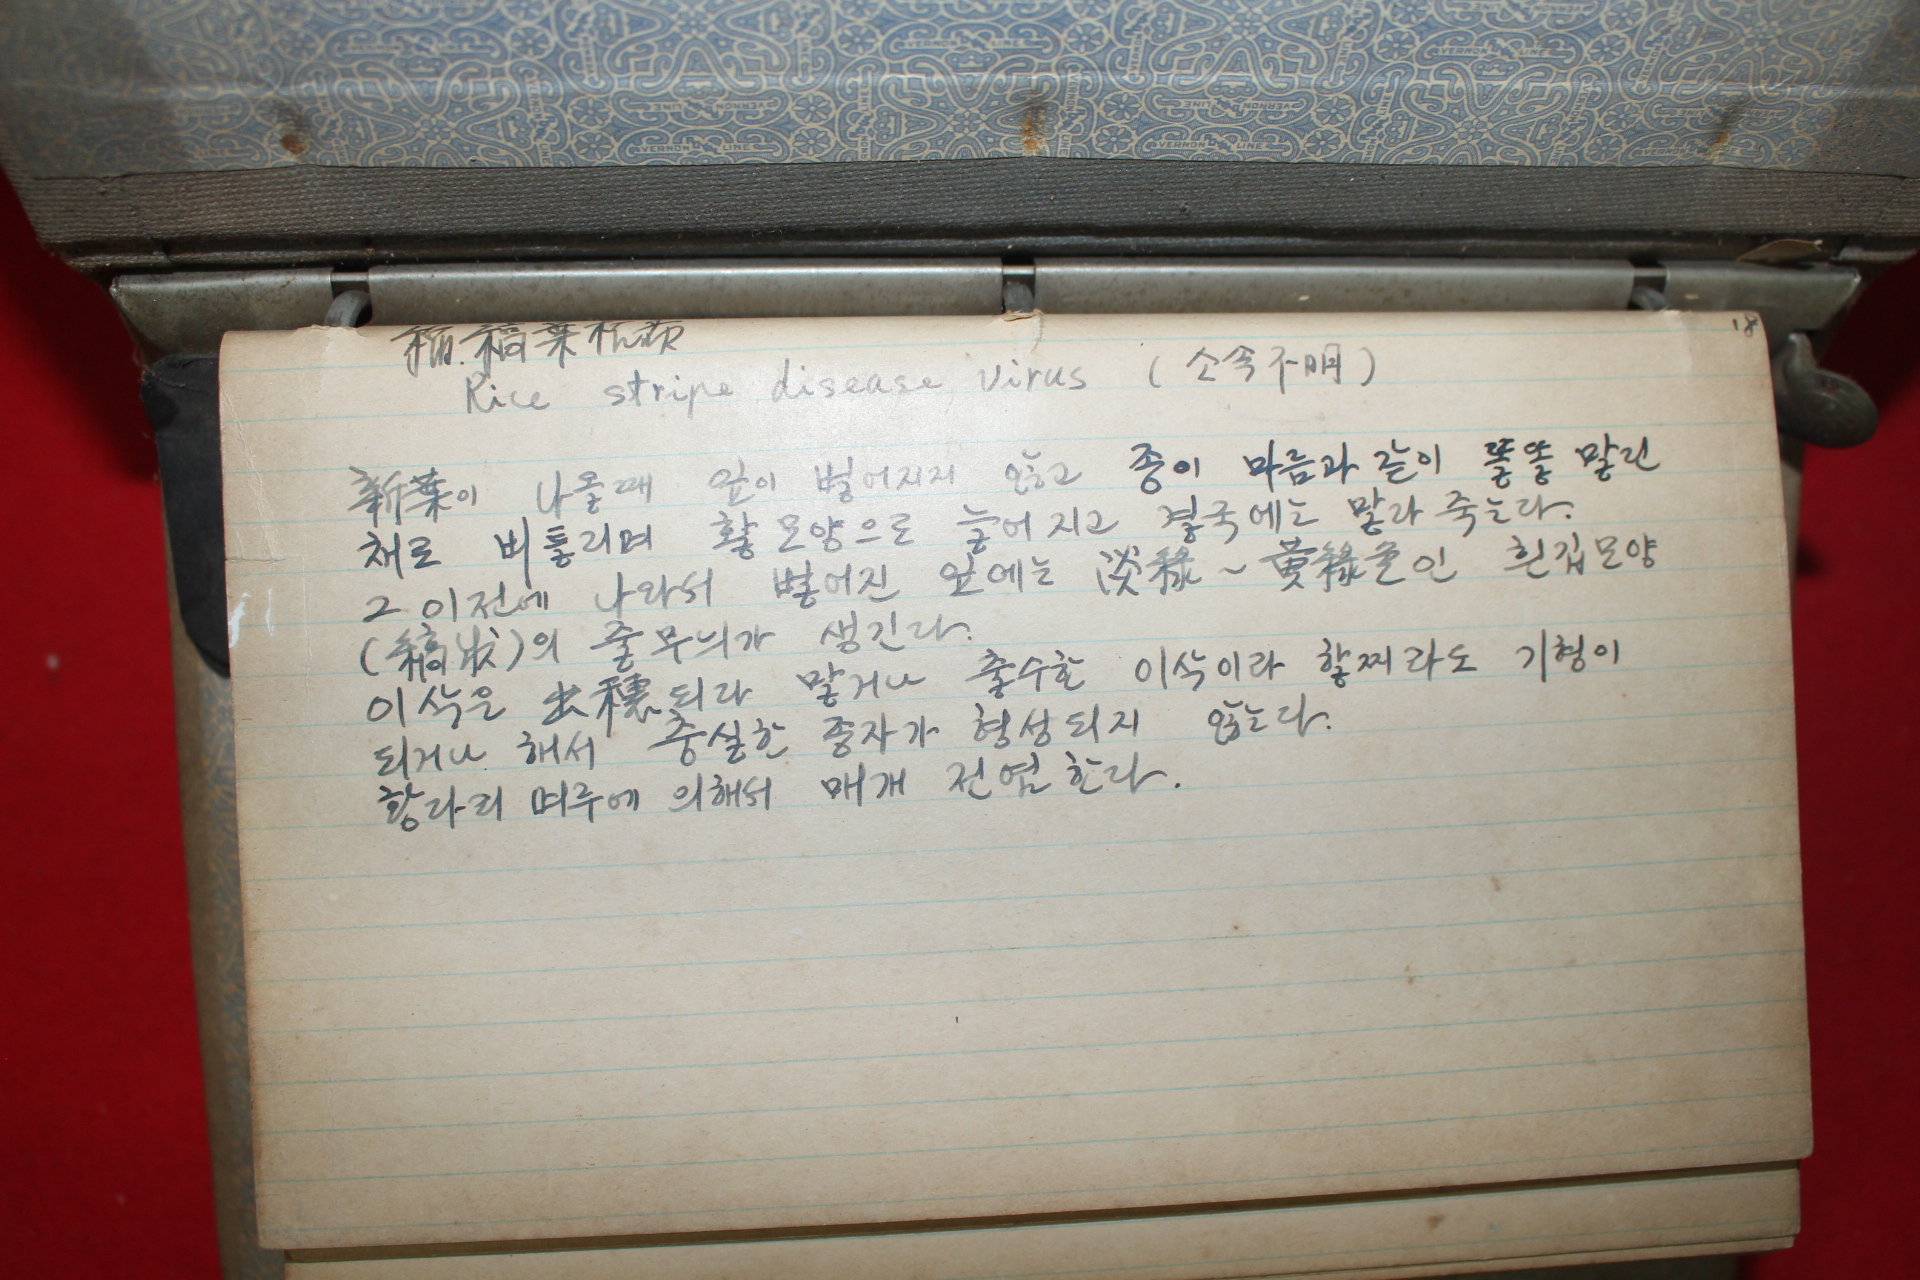 VERNON LINE
18
稲.稲葉枯病
Rice stripe disease virus (소속不明)
新葉이 나올때 잎이 벌어지지 않고 종이 마름과 같이 똘똘 말린
채로 비틀리며 활모양으로 늘어지고 결국에는 말라 죽는다.
그 이전에 나와서 벌어진 잎에는 淡綠~黃綠色인 흰깁모양
(縞狀)의 줄무늬가 생긴다.
이삭은 出穗되라 말거나 출수한 이삭이라 할찌라도 기형이
되거나 해서 충실한 종자가 형성되지 않는다.
황라리 며루에 의해서 매개 전염한다.